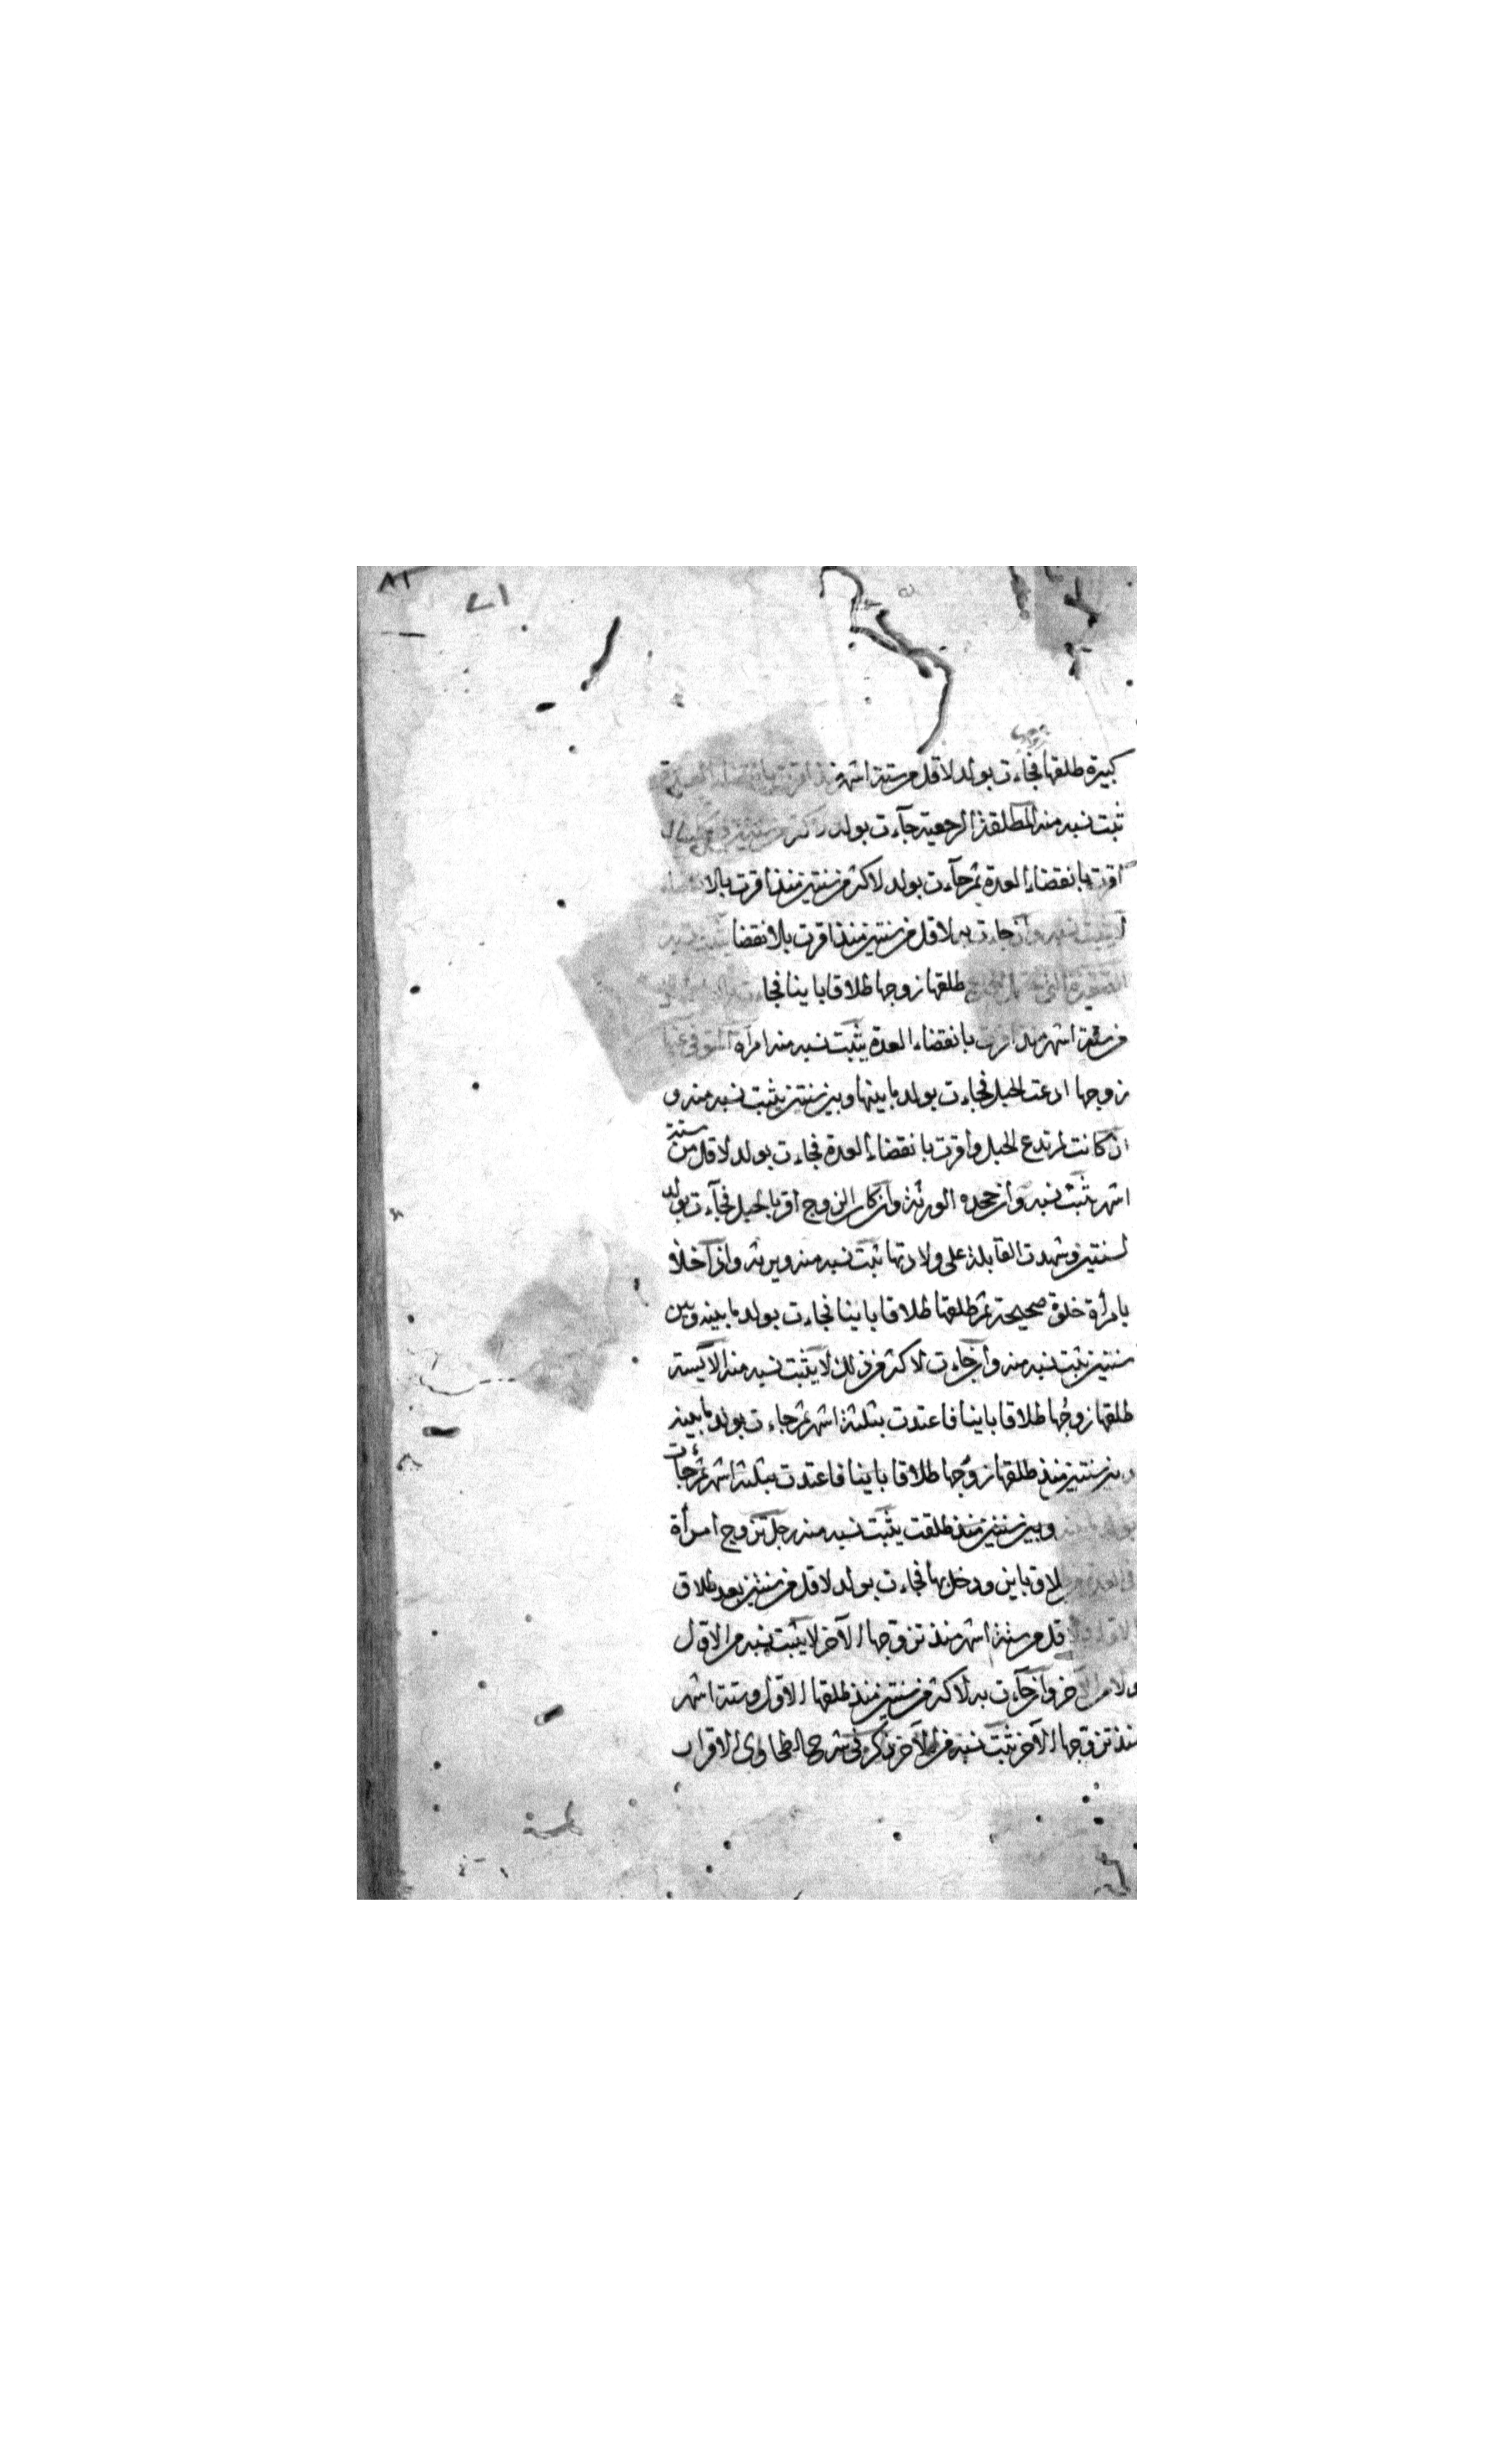 ٨١
٧١
زوجها
كبيرة طلقها فجاءت بولد لاقل من ستة اشهر منذ اقرت بانقضاء العدة
ثبت نسبه منه المطلقة الرجعية جآءت بولد لاكثر من سنتين
اقرت بانقضاء العدة ثم جآءت بولد لاكثر من سنتين منذ اقرت بالانقضاء
لا يثبت نسبه وان جاءت به لاقل من سنتين منذ اقرت بالانقضا يثبت نسبه
الصغيرة التى طلقها زوجها طلاقا باينا فجاءت
من ستة اشهر منذ اقرت بانقضاء العدة يثبت نسبه منه امرأة المتوفى عنها
زوجها ادعت الحبل فجاءت بولد ما بينها وبين سنتين يثبت نسبه منه و
ان كانت لم تدع الحبل واقرت بانقضاء العدة فجاءت بولد لاقل من ستة
اشهر ثبت نسبه وان جحده الورثة وان كان الزوج اقر بالحبل فجآءت بولد
لسنتين وشهدت القابلة على ولادتها ثبت نسبه منه ويرثه واذا خلا
بامرأة خلوة صحيحة ثم طلقها طلاقا باينا فجاءت بولد ما بينه وبين
سنتين ثبت نسبه منه وان جاءت لاكثر من ذلك لا يثبت نسبه منه الآيسة
طلقها زوجها طلاقا باينا فاعتدت بثلثة اشهر ثم جاءت بولد ما بينه
وبين سنتين منذ طلقها زوجها طلاقا باينا فاعتدت بثلثة اشهر ثم جاءت
بولد ما بينه وبين سنتين منذ طلقت يثبت نسبه منه رجل تزوج امرأة
فى العدة من طلاق باين ودخل بها فجاءت بولد لاقل من سنتين بعد طلاق
الاول ولاقل من ستة اشهر منذ تزوجها الآخر لا يثبت نسبه من الاول
ولا من الآخر وان جآءت به لاكثر من سنتين منذ طلقها الاول وستة اشهر
منذ تزوجها الآخر ثبت نسبه من الآخر ذكره فى شرح الطحاوى الاقراب